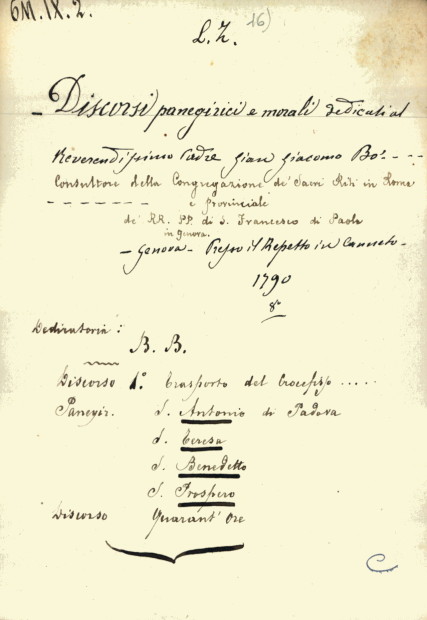 6M.IX.2.
16)
L. Z.
- Discorsi panegirici e morali dedicati al
Reverendissimo Padre Gian Giacomo Bo' - - -
Consultore della Congregazione de' Sacri Riti in Roma
- - - - - - - e Provinciale
de' RR. PP. di S. Francesco di Paola
in Genova.
- Genova - Presso il Repetto in Canneto -
1790
8°
Dedicatoria:
B. B.
Discorso 1.° Trasporto del Crocefisso .....
Panegir. S. Antonio di Padova
S. Teresa
S. Benedetto
S. Prospero
Discorso Quarant' Ore
C